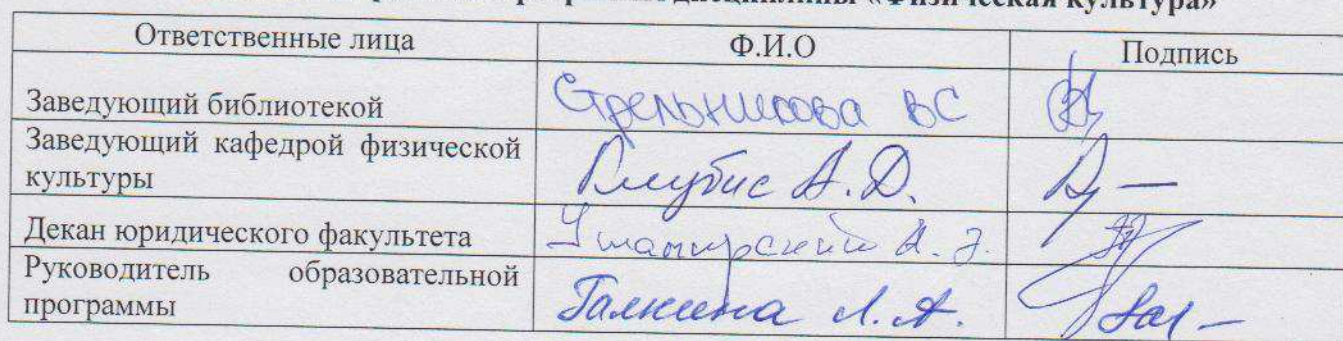 дисциплины «Физическая культура»
Ответственные лица Ф.И.О Подпись
Заведующий библиотекой Стрельникова ВС
Заведующий кафедрой физической
культуры А.Д.
Декан юридического факультета
Руководитель образовательной
программы Галкина Л.А.